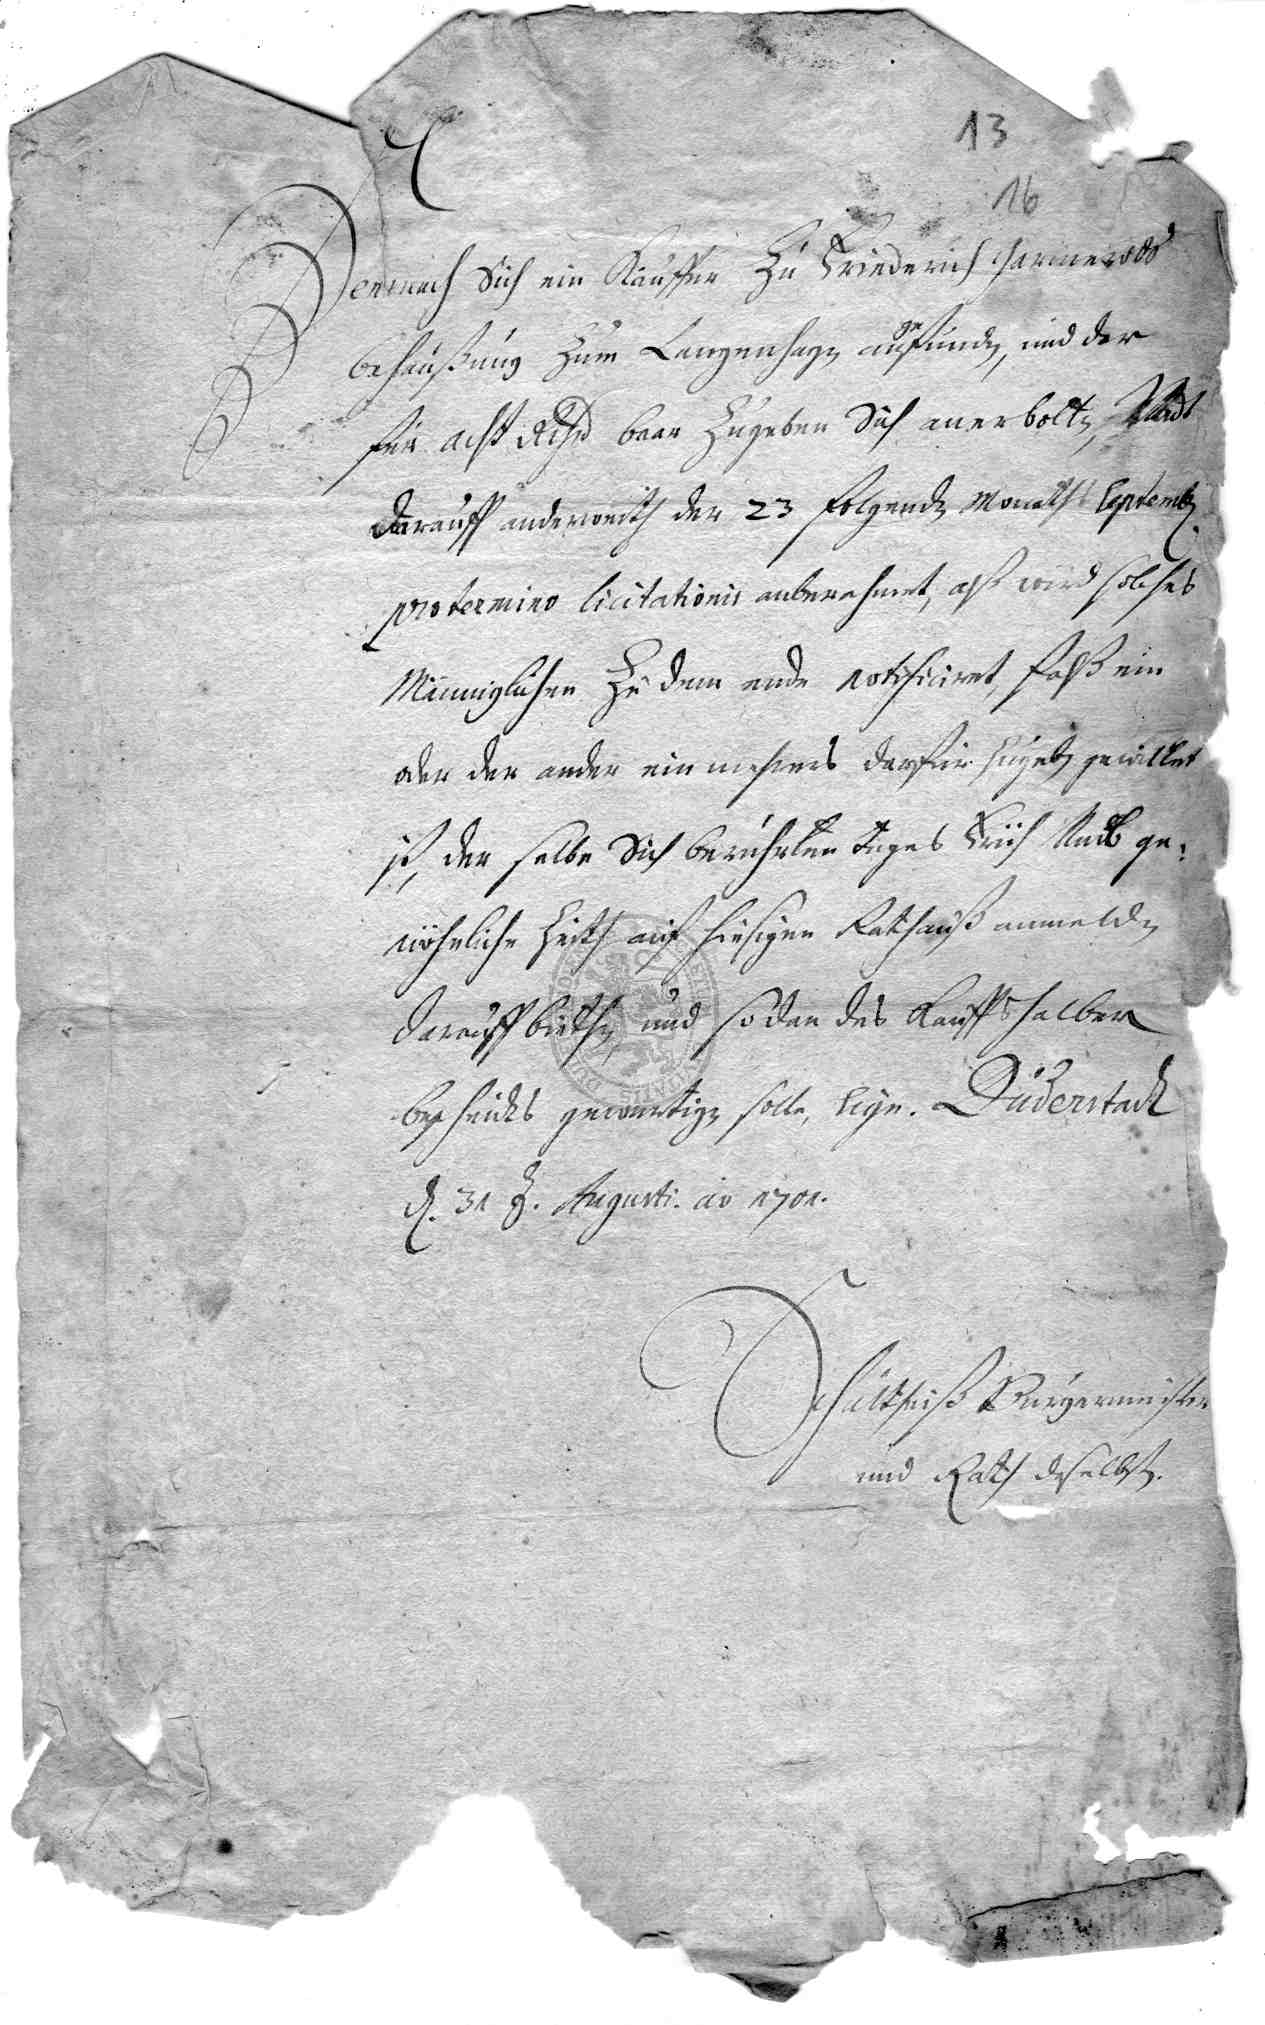 13
16
Demnach Sich ein Käuffer Zu Friederich Harmerodts
behaußung Zum Langenhagen angefunden, und der
für acht Rthr baar Zugeben Sich anerbotten,
darauff anderweith der 23 folgenden Monaths Septembr
pro termino licitationis anberahmet, alß wird solches
Männiglichen Zu dem ende notificiret, falß ein
oder der ander ein mehrers darfür Zugeben gewillet
ist, der selbe Sich berührten Tages Früh Rath ge-
wöhnliche Zeith auf hiesigen Rathhauß anmelden
darauff biethen, und sodan des Kauffs halber
bescheidts gewärtigen solle, Sign. Duderstadt
d. 31 t. Augusti. ao 1701.
Schultheiß Bürgermeister
und Rath daselbst.